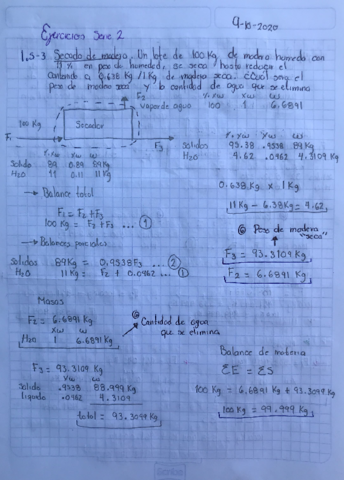 9-10-2020
Ejercicios Serie 2
1.5-3 Secado de madera. Un lote de 100 Kg de madera humeda con
11 % en peso de humedad, se seca hasta reducir el
contenido a 0.638 Kg / 1 Kg de madera seca. ¿Cuál será el
peso de madera "seca" y la cantidad de agua que se elimina
F2 %xw xw w
vapor de agua 100 1 6.6891
100 Kg
Secador
F1
F3
%xw xw w
Solidos 95.38 .9538 89 Kg
H2O 4.62 .0462 4.3109 Kg
%xw xw w
Solido 89 0.89 89 Kg
H2O 11 0.11 11 Kg
0.638 Kg x 1 Kg
11 Kg - 6.38 Kg = 4.62
→ Balance total
F1 = F2 + F3
100 Kg = F2 + F3 ... ①
→ Balances parciales
Solidos 89 Kg = 0.9538 F3 ... ②
H2O 11 Kg = F2 + 0.0462 ... ①
Peso de madera
"seca"
F3 = 93.3109 Kg
F2 = 6.6891 Kg
Masas
F2 = 6.6891 Kg
xw w
H2O 1 6.6891 Kg
Cantidad de agua
que se elimina
F3 = 93.3109 Kg
xw w
Solido .9538 88.999 Kg
liquido .0462 4.3109
total = 93.3099 Kg
Balance de materia
ΣE = ΣS
100 Kg = 6.6891 Kg + 93.3099 Kg
100 Kg = 99.999 Kg